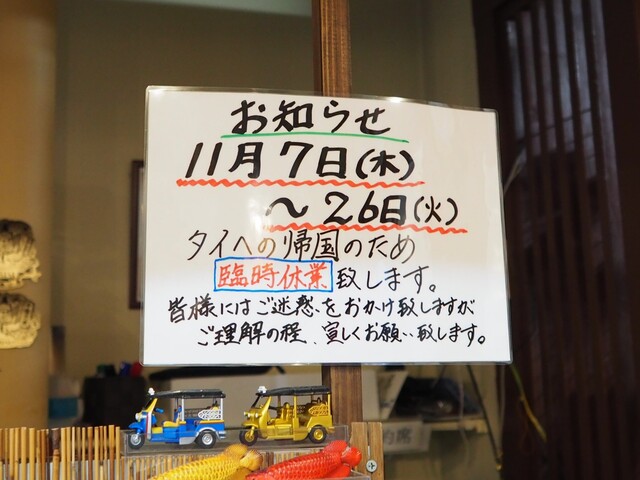 お知らせ
11月7日(木)
～26日(火)
タイへの帰国のため
臨時休業致します。
皆様にはご迷惑をおかけ致しますが
ご理解の程、宜しくお願い致します。
約席